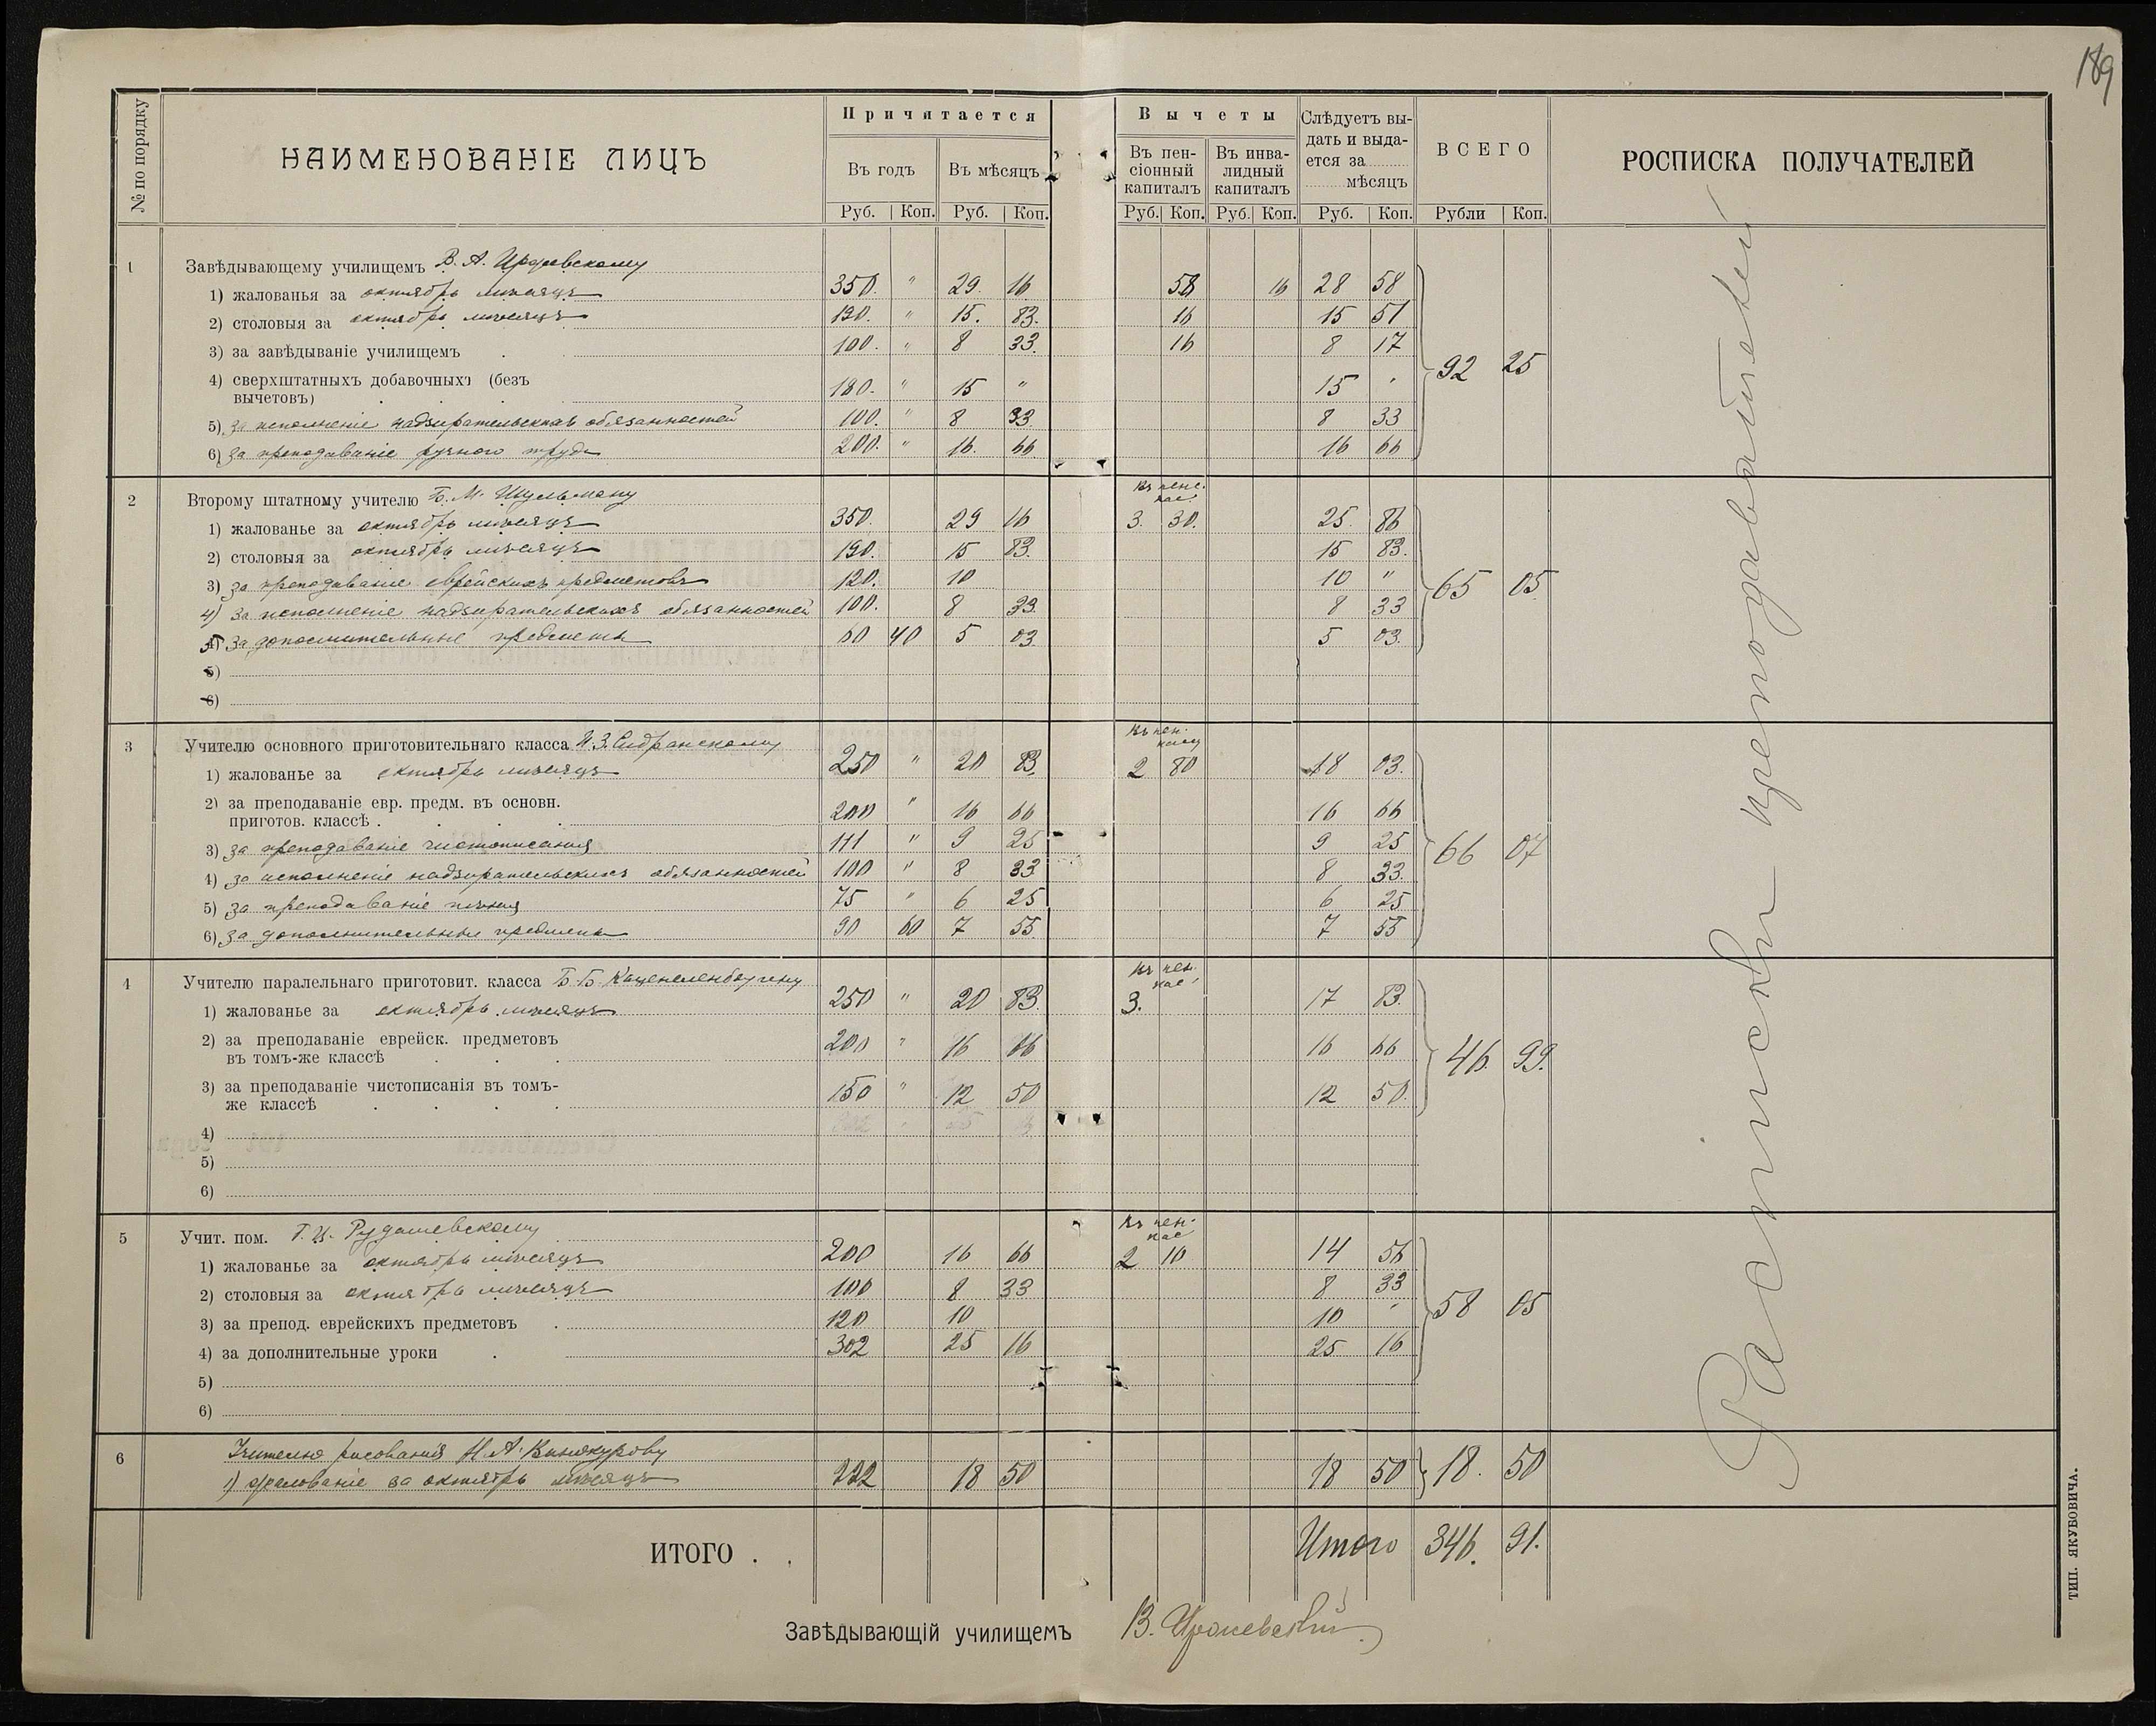 189
№ по порядку
НАИМЕНОВАНІЕ ЛИЦЪ
Причитается
Въ годъ
Въ мѣсяцъ
Руб. Коп. Руб. Коп.
Вычеты
Въ пен-
сіонный
капиталъ
Въ инва-
лидный
капиталъ
Руб. Коп. Руб. Коп.
Слѣдуетъ вы-
дать и выда-
ется за
мѣсяцъ
Руб. Коп.
ВСЕГО
Рубли Коп.
РОСПИСКА ПОЛУЧАТЕЛЕЙ
1 Завѣдывающему училищемъ В. А.
1) жалованья за октябрь мѣсяцъ 350. " 29. 16 58 16 28 58
2) столовыя за октябрь мѣсяцъ 190. " 15. 83. 16 15 51
3) за завѣдываніе училищемъ 100. " 8 33. 16 8 17
92 25
4) сверхштатныхъ добавочныхъ (безъ
вычетовъ) 180. " 15 " 15 "
5) за исполненіе надзирательскихъ обязанностей 100. " 8 33 8 33
6) за преподаваніе ручного труда 200. " 16. 66 16 66
2 Второму штатному учителю Б. М. Шульману
Въ пенс.
кас.
1) жалованье за октябрь мѣсяцъ 350. 29 16 3. 30. 25. 86
2) столовыя за октябрь мѣсяцъ 190. 15 83. 15 83.
3) за преподаваніе еврейскихъ предметовъ 120. 10 10 "
65 05
4) за исполненіе надзирательскихъ обязанностей 100. 8 33. 8 33
5) за дополнительные предметы 60 40 5 03 5 03.
5)
6)
3 Учителю основного приготовительнаго класса И. З. Сидранскому
Въ пен.
кассу
1) жалованье за октябрь мѣсяцъ 250 " 20 83. 2 80 18 03.
2) за преподаваніе евр. предм. въ основн.
приготов. классѣ 200 " 16 66 16 66
3) за преподаваніе чистописанія 111 " 9 25 9 25
66 07
4) за исполненіе надзирательскихъ обязанностей 100 " 8 33 8 33.
5) за преподаваніе пѣнія 75 " 6 25 6 25
6) за дополнительные предметы 90 60 7 55 7 55
4 Учителю паралельнаго приготовит. класса Б. Б. Каценеленбогену
Въ пен.
кас.
1) жалованье за октябрь мѣсяцъ 250 " 20 83. 3. 17 83.
2) за преподаваніе еврейск. предметовъ
въ томъ-же классѣ 200 " 16 66 16 66
46. 99.
3) за преподаваніе чистописанія въ томъ-
же классѣ 150 " 12 50 12 50.
4)
5)
6)
5 Учит. пом. Г. И. Рудашевскому
Въ пен.
кас
1) жалованье за октябрь мѣсяцъ 200 16 66 2 10 14 56
2) столовыя за октябрь мѣсяцъ 100 8 33 8 33
3) за препод. еврейскихъ предметовъ 120 10 10 "
58 05
4) за дополнительные уроки 302 25 16 25 16
5)
6)
6 Учителю рисованія Н. А. Винокурову
1) жалованіе за октябрь мѣсяцъ 222 18 50 18 50 18. 50
ИТОГО . . Итого 346. 91.
Завѣдывающій училищемъ В.
Расписки преподавателей
ТИП. ЯКУБОВИЧА.